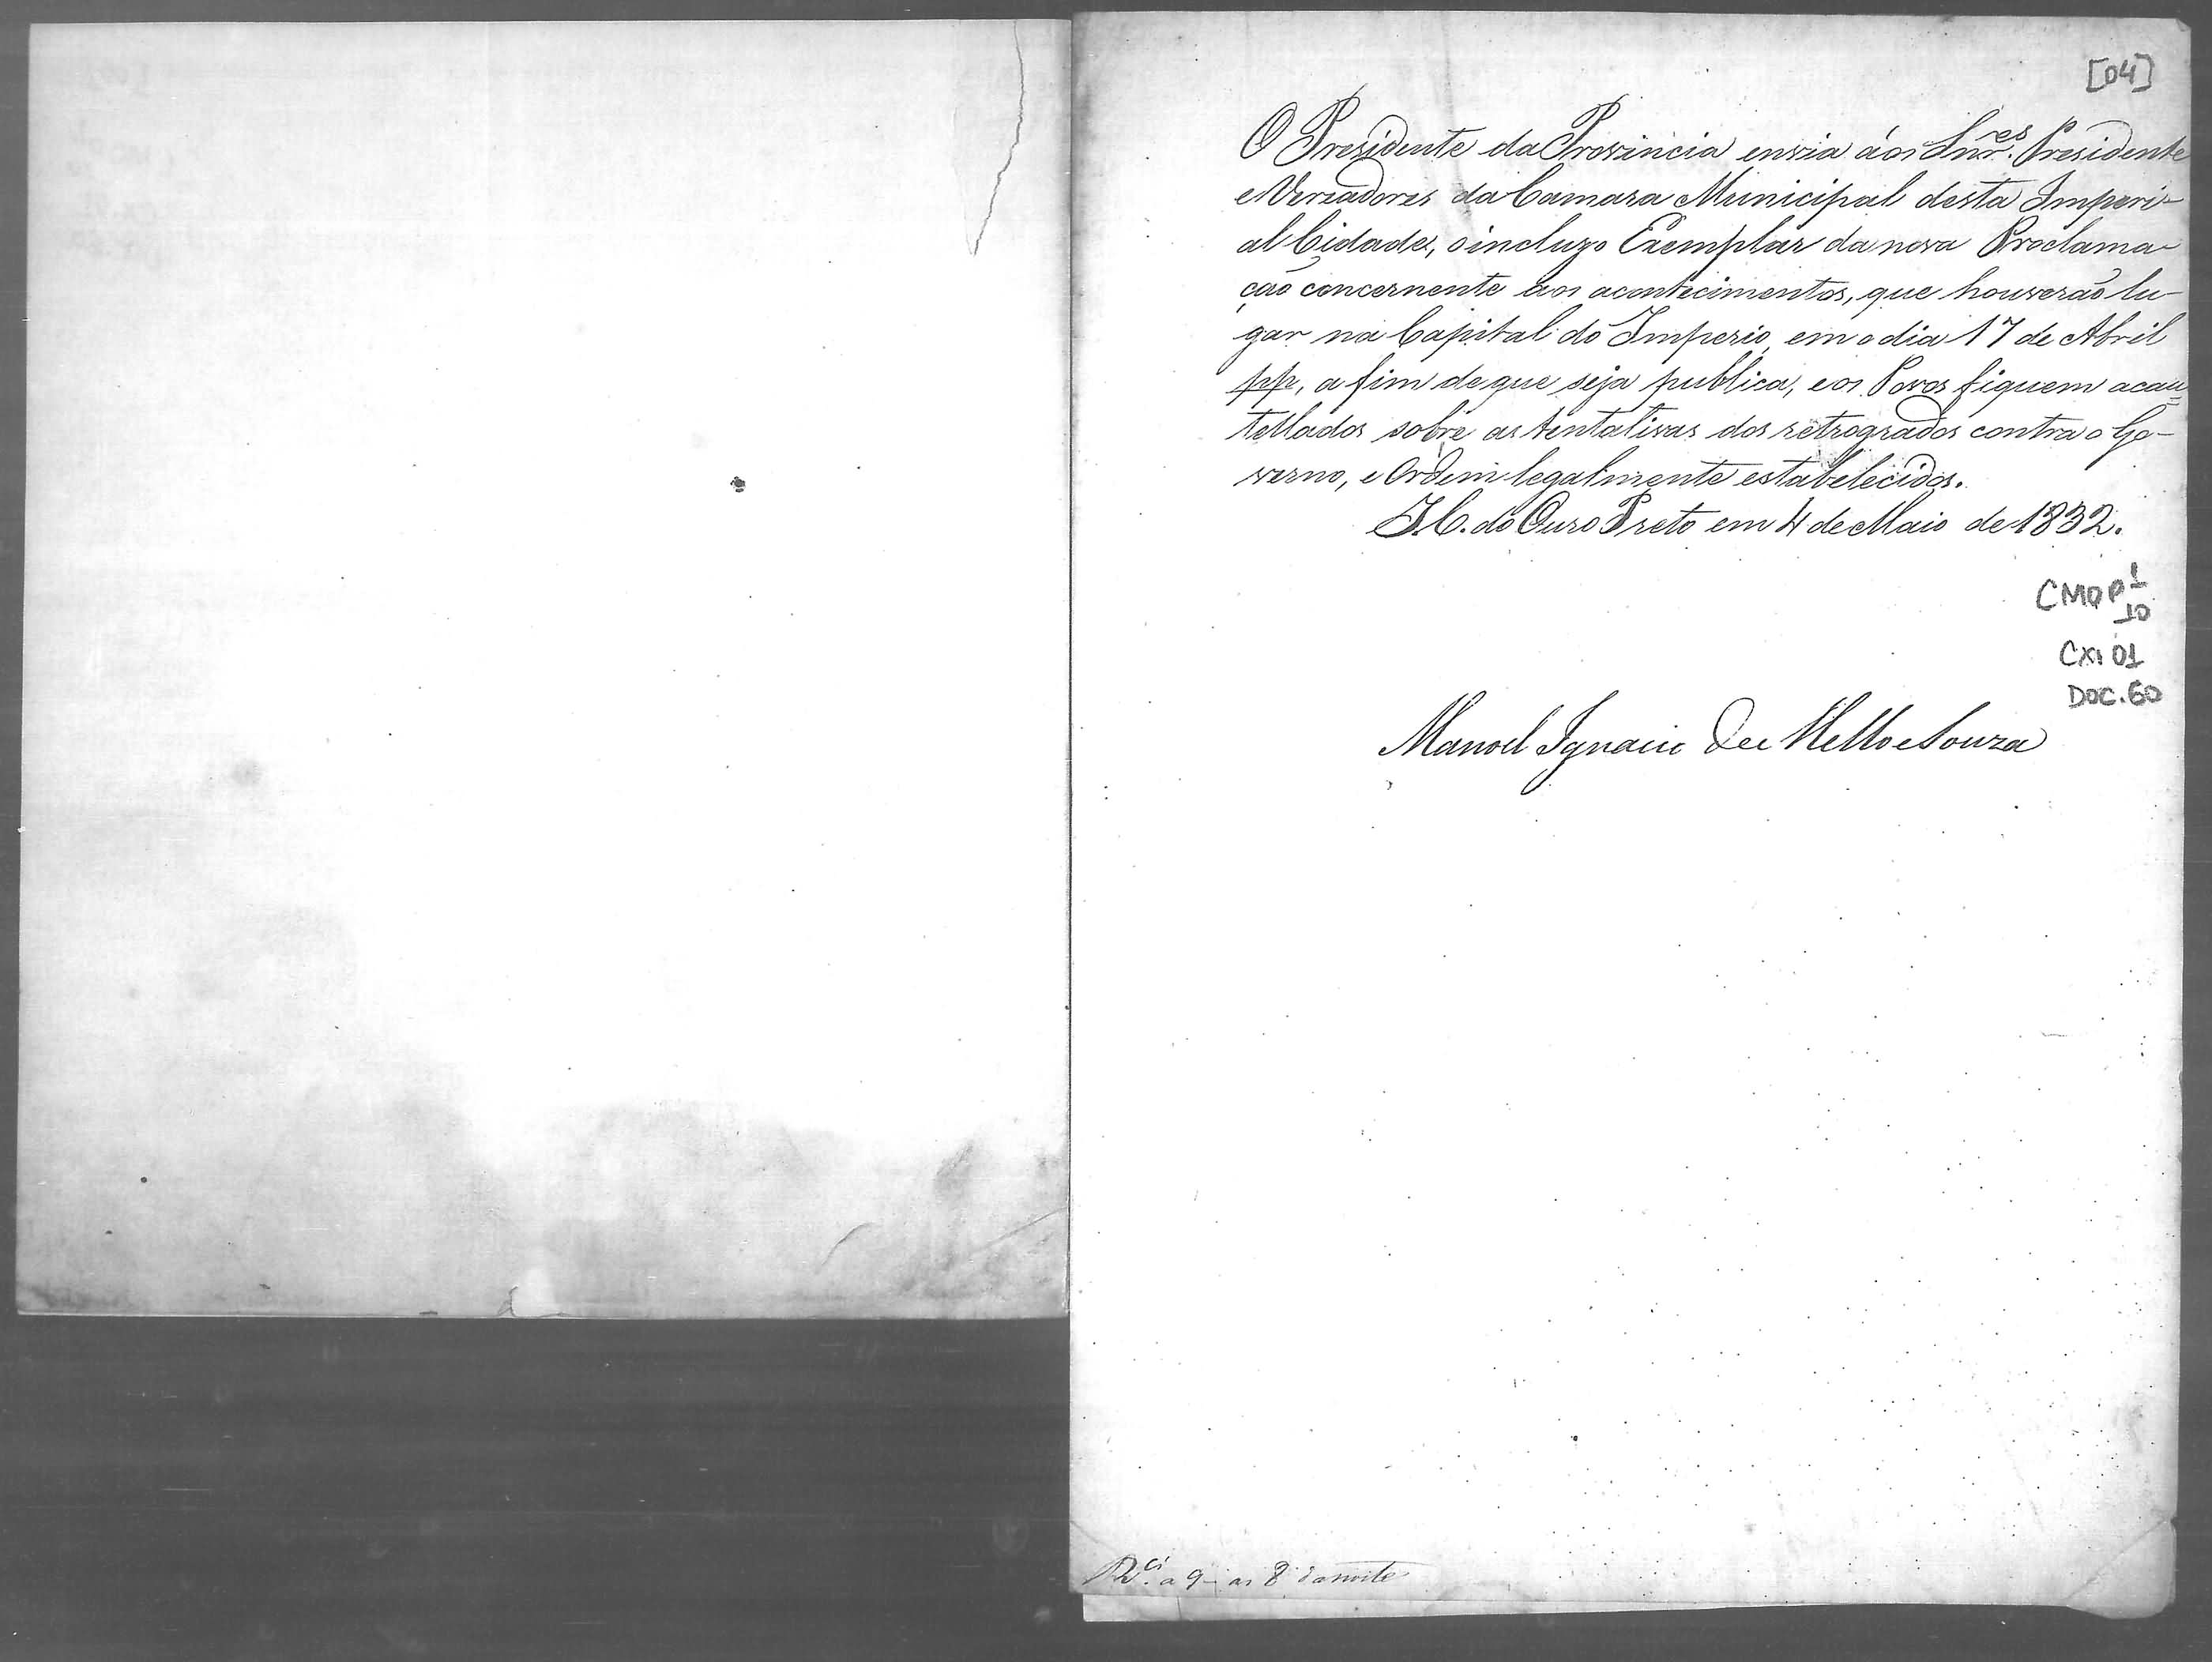 [04]
O Prezidente da Provincia envia áos Snr.es Presidente
e Vereadores da Camara Municipal desta Imperi-
al Cidade, o incluzo Exemplar da nova Proclama-
ção concernente aos acontecimentos, que houverão lu-
gar na Capital do Imperio, em o dia 17 de Abril
pp, a fim de que seja publica, e os Povos fiquem acau=
tellados sobre as tentativas dos retrogrados contra o Go-
verno, e Ordem legalmente estabelecidos.
I.C. do Ouro Preto em 4 de Maio de 1832.
CMOP 1
10
CX. 01
DOC. 60
Manoel Ignacio de Mello e Souza
a 9 as 8 da noite